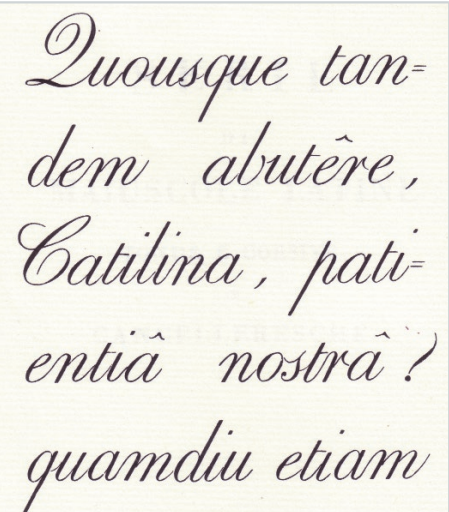 Quousque tan=
dem abutêre,
Catilina, pati=
entiâ nostrâ?
quamdiu etiam